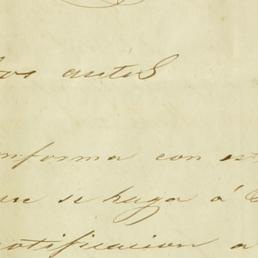 los autos
conforma con est
que se haga á
notificacion a